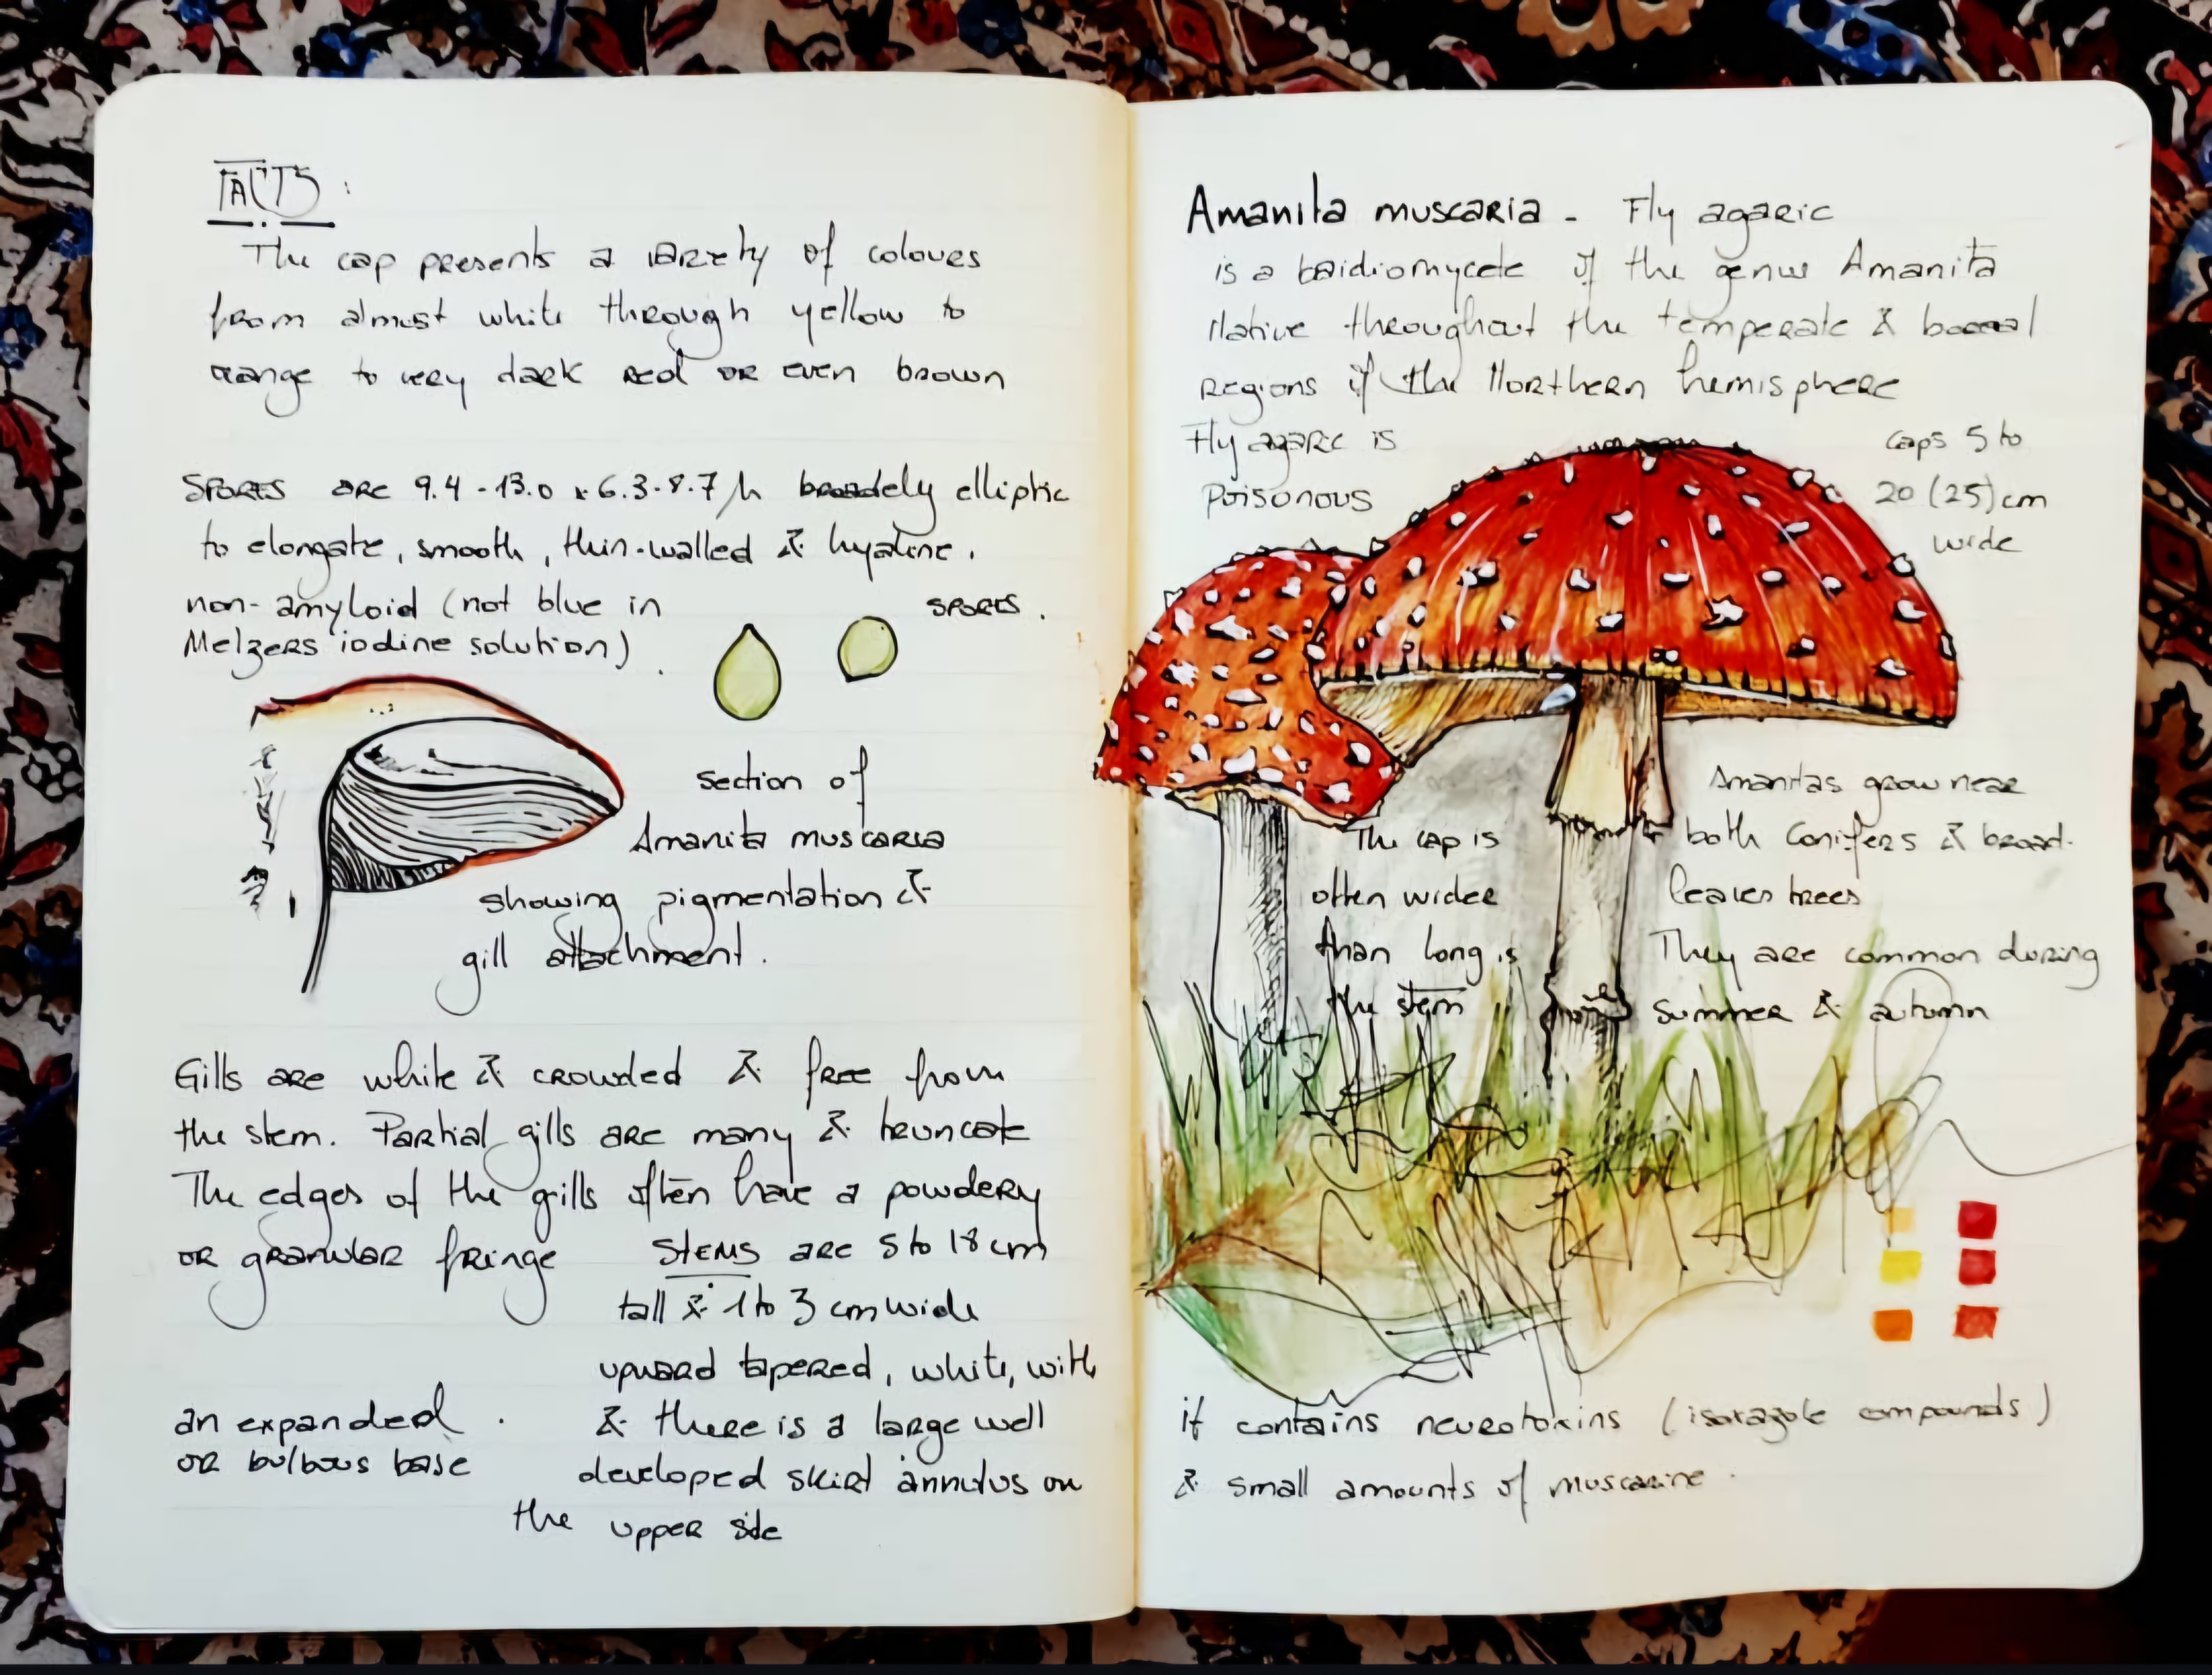 FACTS :
The cap presents a variety of colours
from almost white through yellow to
orange to very dark red or even brown
SPORES are 9.4-13.0 x 6.3-8.7 µ broadely elliptic
to elongate, smooth, thin-walled & hyaline.
non-amyloid (not blue in
Melzers iodine solution).
SPORES.
section of
Amanita muscaria
showing pigmentation &
gill attachment.
Gills are white & crowded & free from
the stem. Partial gills are many & truncate
The edges of the gills often have a powdery
or granular fringe
STEMS are 5 to 18 cm
tall & 1 to 3 cm wide
upward tapered, white, with
an expanded
or bulbous base
& there is a large well
developed skirt annulus on
the upper side
Amanita muscaria - Fly agaric
is a baidiomycete of the genus Amanita
Native throughout the temperate & boreal
regions of the Northern hemisphere
Fly agaric is
poisonous
caps 5 to
20 (25) cm
wide
The cap is
often wider
than long is
the stem
Amanitas grow near
both conifers & broad-
leaves trees
They are common during
summer & autumn
it contains neurotoxins (isoxazole compounds)
& small amounts of muscarine.